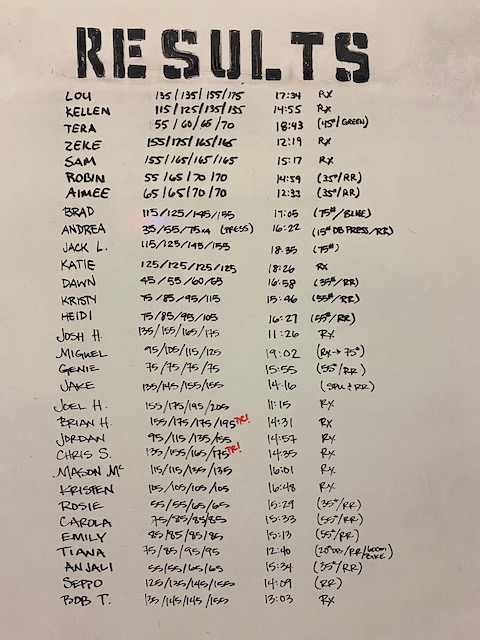 RESULTS
LOU 135/135/155/175 17:34 RX
KELLEN 115/125/135/135 14:55 RX
TERA 55/60/65/70 18:43 (45#/GREEN)
ZEKE 155/175/165/165 12:19 RX
SAM 155/165/165/165 15:17 RX
ROBIN 55/65/70/70 14:59 (35#/RR)
AIMEE 65/65/70/70 12:33 (35#/RR)
BRAD 115/125/145/155 17:05 (75#/BLUE)
ANDREA 35/55/75 (PRESS) 16:22 (15# DB PRESS/RR)
JACK L. 115/125/145/155 18:35 (75#)
KATIE 125/125/125/125 18:26 RX
DAWN 45/55/60/65 16:58 (35#/RR)
KRISTY 75/85/95/115 15:46 (55#/RR)
HEIDI 75/85/95/105 16:27 (55#/RR)
JOSH H. 135/155/165/175 11:26 RX
MIGUEL 95/105/115/125 19:02 (RX→75#)
GENIE 75/75/75/75 15:55 (55#/RR)
JAKE 135/145/155/155 14:16 RR)
JOEL H. 155/175/195/205 11:15 RX
BRIAN H. 155/175/175/195 PR! 14:31 RX
JORDAN 95/115/135/155 14:57 RX
CHRIS S. 135/155/165/175 PR! 14:35 RX
MASON Mc 115/115/135/135 16:01 RX
KRISTEN 105/105/105/105 16:48 RX
ROSIE 55/55/65/65 15:29 (35#/RR)
CAROLA 75/85/85/85 15:33 (55#/RR)
EMILY 85/85/85/85 15:13 (55#/RR)
TIANA 75/85/95/95 12:40 (20#DB/RR/600m BIKE)
ANJALI 55/55/65/65 15:34 (35#/RR)
SEPPO 125/135/145/155 14:09 (RR)
BOB T. 135/145/145/155 13:03 RX